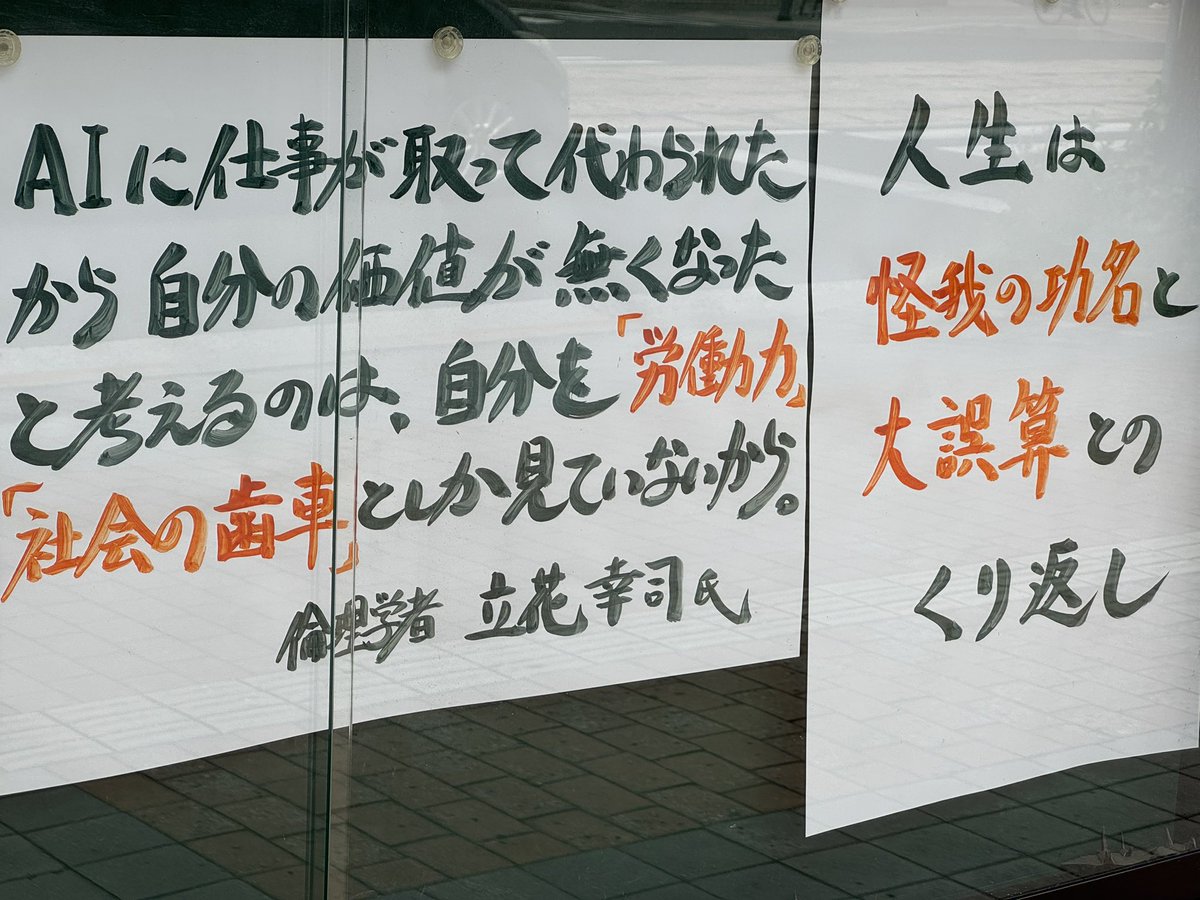 AIに仕事が取って代わられた
から自分の価値が無くなった
と考えるのは、自分を「労働力」
「社会の歯車」としか見ていないから。
倫理学者 立花幸司氏
人生は
怪我の功名と
大誤算との
くり返し